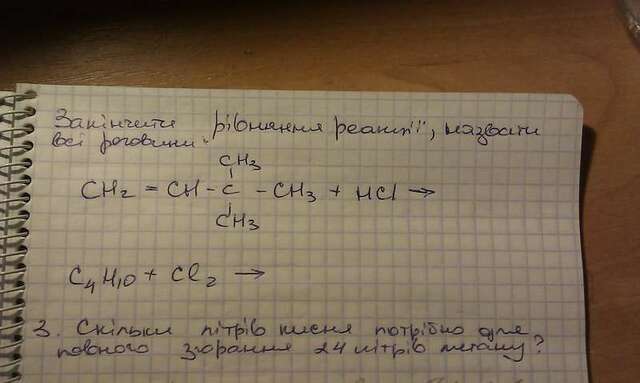 Закінчити рівняння реакції, назвати
всі речовини.
CH₃
CH₂ = CH - C - CH₃ + HCl →
CH₃
C₄H₁₀ + Cl₂ →
3. Скільки літрів кисня потрібно для
повного згорання 24 літрів метану?